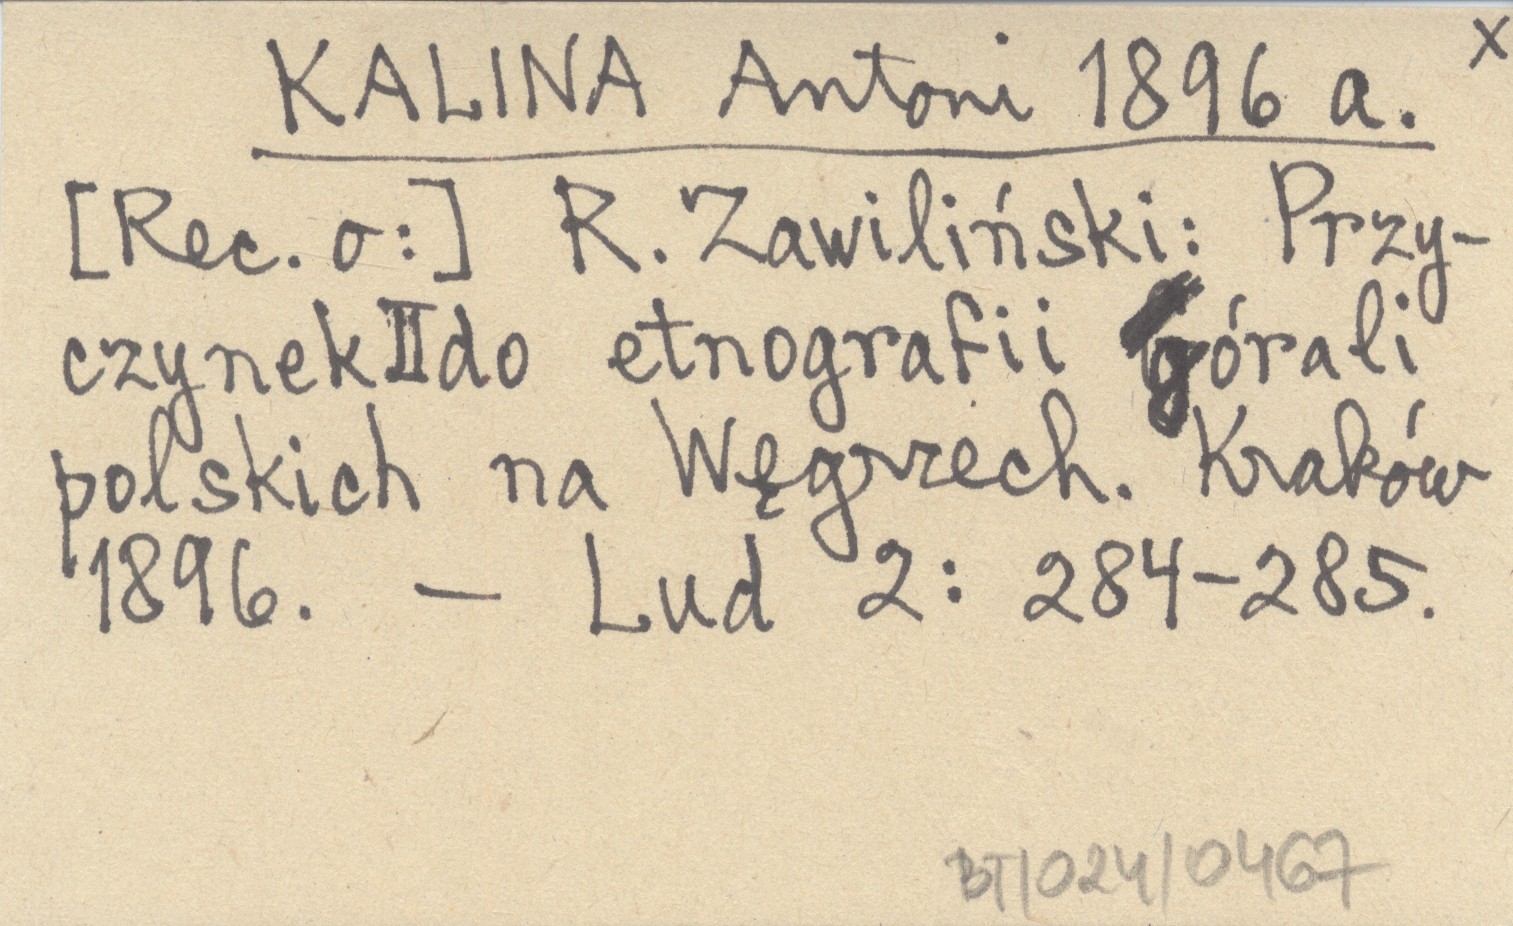 x
KALINA Antoni 1896 a.
[Rec. o:] R. Zawiliński: Przy-
czynek II do etnografii górali
polskich na Węgrzech. Kraków
1896. — Lud 2: 284-285.
BT/024/0467